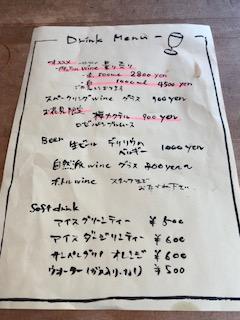 Drink Menu
オススメ wine 量り売り
500ml 2800 yen
1000ml 4500 yen
スパークリング wine グラス 900 yen
お花見限定 桜カクテル 900 yen
Beer 生ビール デリリウム 1000 yen
ベルギー
自然派 wine グラス 900 yen〜
ボトル wine スタッフまで
おたずね下さい
Soft drink
アイスグリーンティー ¥500
アイスダージリンティー ¥600
サンペレグリノ オレンジ ¥600
ウォーター ¥500